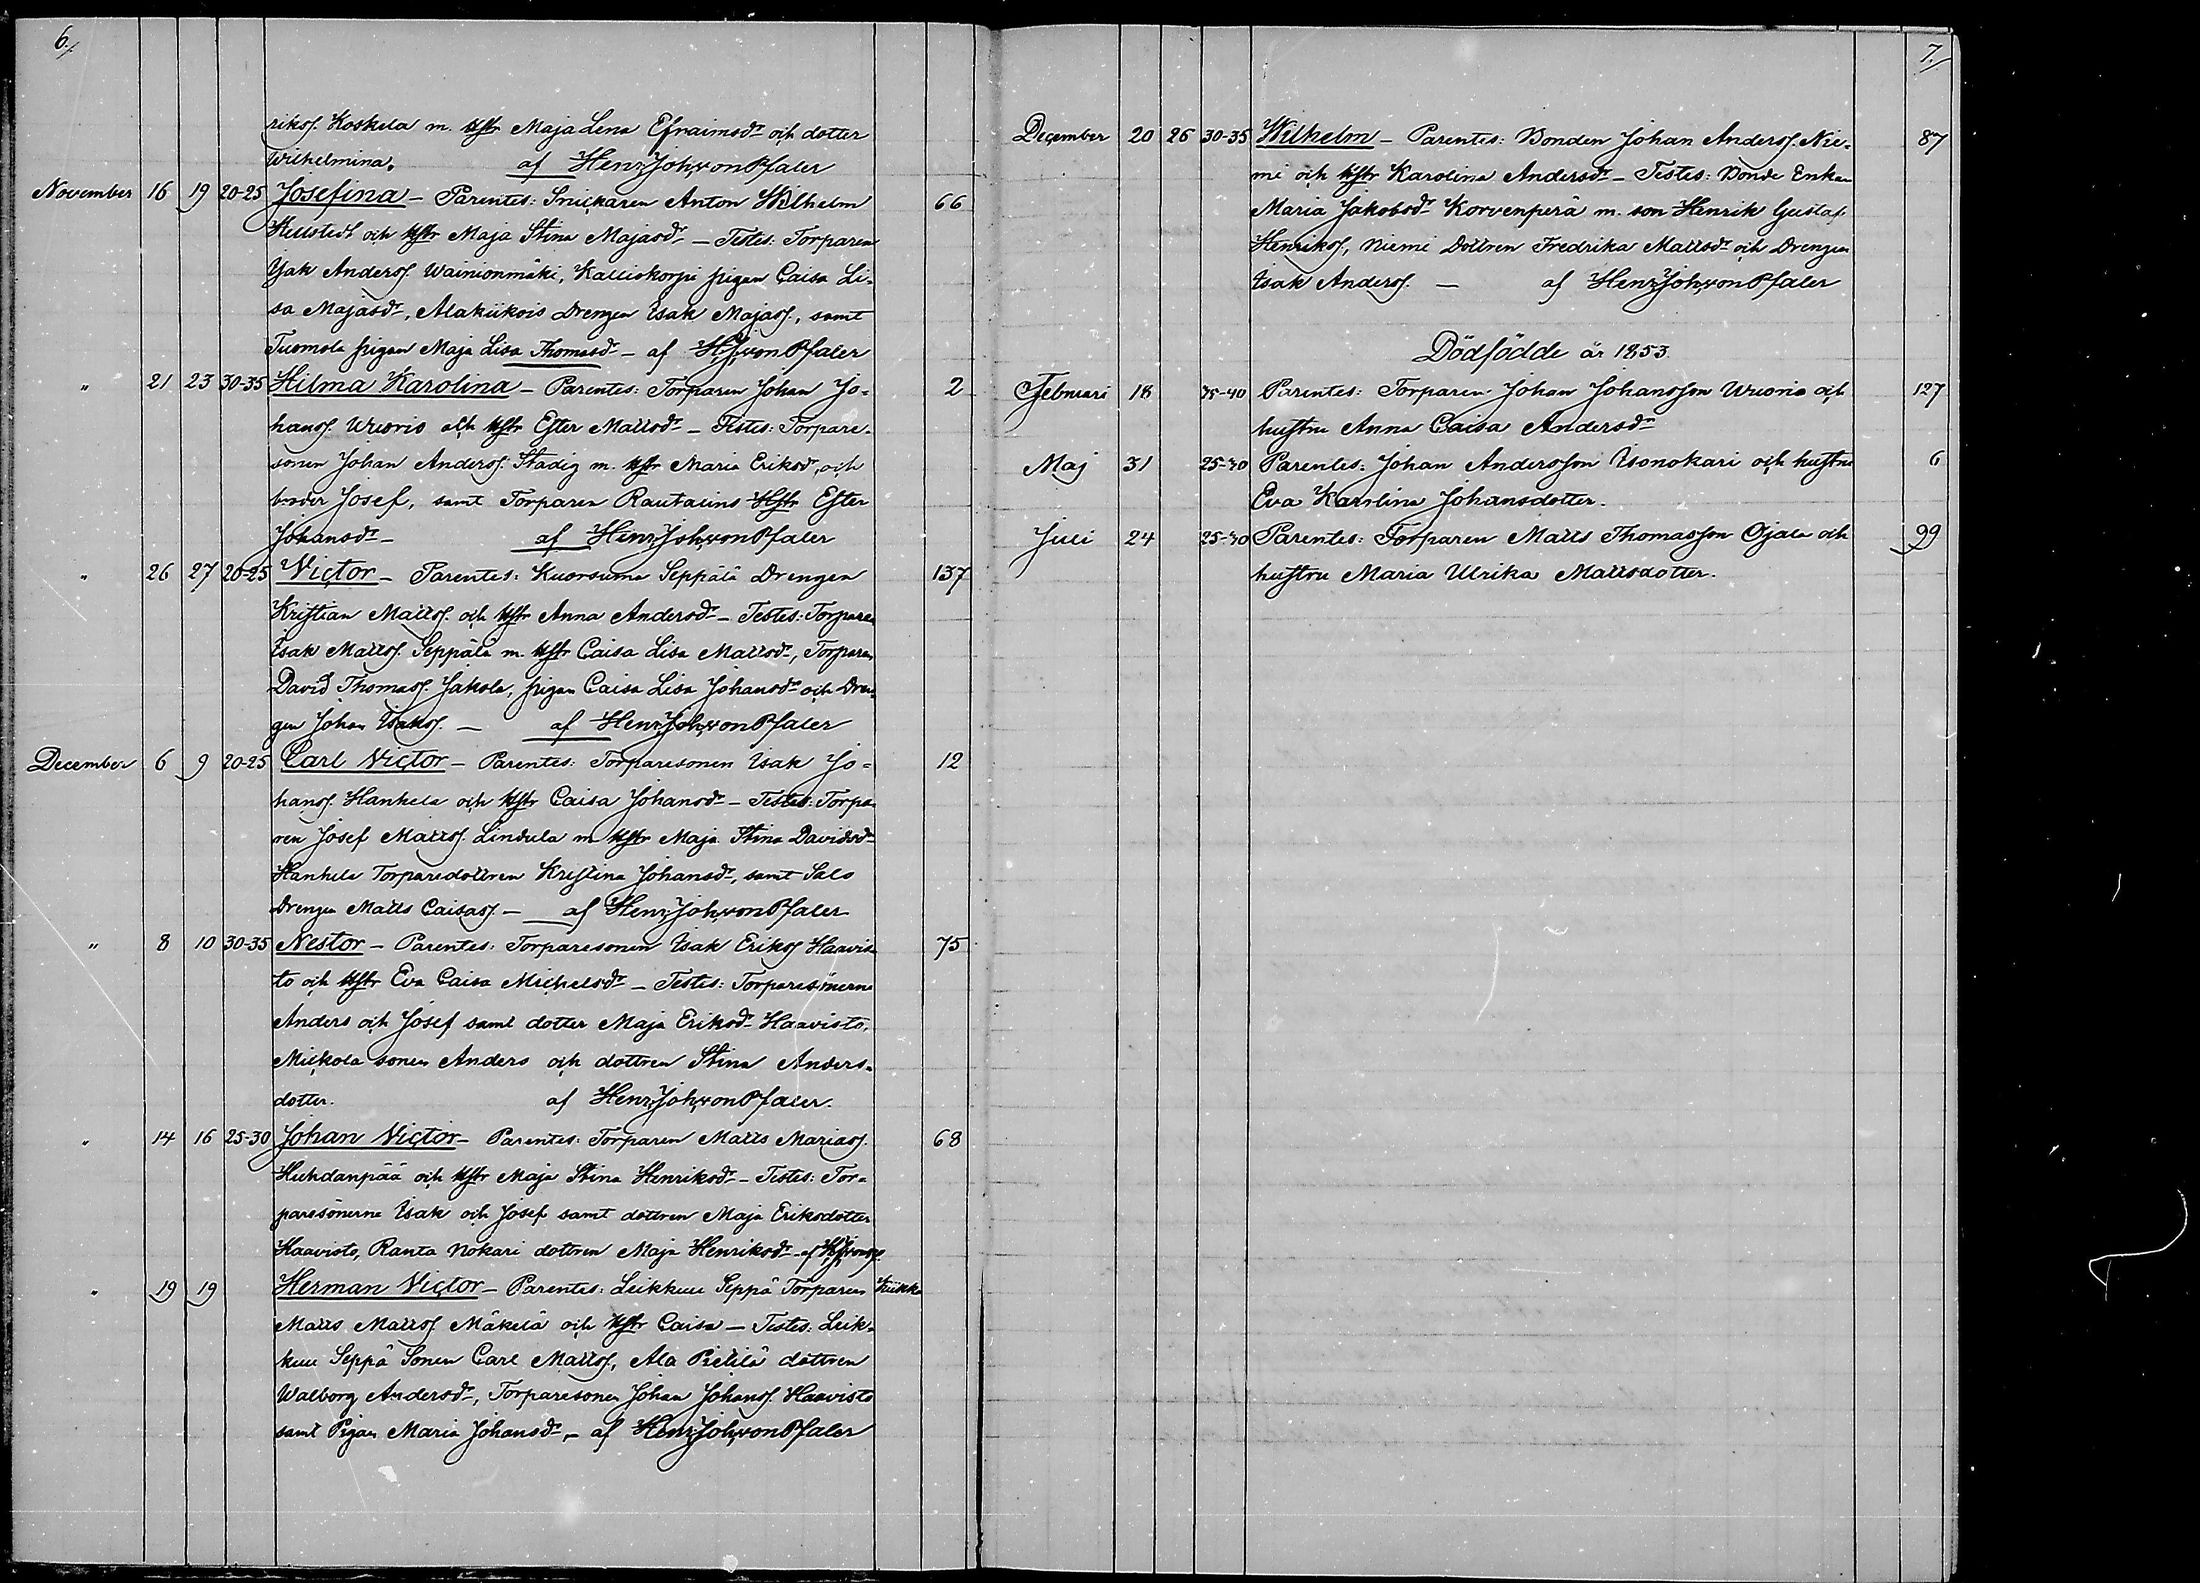 6./
riksſ. Koskela m. Hſtr Maja Lena Efraimsdr och dotter
Wilhelmina. af Henr. Joh. von Pfaler
November 16 19 20-25 Josefina - Parentes: Snickaren Anton Wilhelm 66
Hellstedt och Hſtr Maja Stina Majasdr - Testes: Torparen
Isak Andersſ. Wainionmäki, Kalliokorpi pigan Caisa Li-
sa Majasdr, Alakiikois Drengen Isak Majasſ., samt
Tuomola pigan Maja Lisa Thomasdr - af H. J. von Pfaler
" 21 23 30-35 Hilma Karolina - Parentes: Torparen Johan Jo- 2
hansſ. Wuorio och Hſtr Ester Mattsdr - Testes: Torpare-
sonen Johan Andersſ. Stadig m. Hſtr Maria Eriksdr, och
broder Josef, samt Torparen Rautalins Hſtr Ester
Johansdr - af Henr. Joh. von Pfaler
" 26 27 20-25 Victor - Parentes: Kuorsuma Seppälä Drengen 137
Kristian Mattsſ. och Hſtr Anna Andersdr - Testes: Torparen
Isak Mattsſ. Seppälä m. Hſtr Caisa Lisa Mattsdr, Torparen
David Thomasſ. Jakola, pigan Caisa Lisa Johansdr och Dren-
gen Johan Isaksſ. - af Henr. Joh. von Pfaler
December 6 9 20-25 Carl Victor - Parentes: Torparesonen Isak Jo- 12
hansſ. Hanhela och Hſtr Caisa Johansdr - Testes: Torpa-
ren Josef Mattsſ. Lindula m. Hſtr Maja Stina Davidsdr
Hanhela Torparedottren Kristina Johansdr, samt Salo
Drengen Matts Caisasſ. - af Henr. Joh. von Pfaler
" 8 10 30-35 Nestor - Parentes: Torparesonen Isak Eriksſ. Haavis- 75
to och Hſtr Eva Caisa Michelsdr - Testes: Torparesönerne
Anders och Josef samt dotter Maja Eriksdr Haavisto,
Mickola sonen Anders och dottren Stina Anders-
dotter. af Henr. Joh. von Pfaler.
" 14 16 25-30 Johan Victor - Parentes: Torparen Matts Mariasſ. 68
Huhdanpää och Hſtr Maja Stina Henriksdr - Testes: Tor-
paresönerne Isak och Josef samt dottren Maja Eriksdotter
Haavisto, Ranta Nokari dottren Maja Henriksdr - af H. J. von Pf.
" 19 19 Herman Victor - Parentes: Leikkuu Seppä Torparen Kiikka
Matts Mattsſ. Mäkelä och Hſtr Caisa - Testes: Leik-
kuu Seppä Sonen Carl Mattsſ., Ala Pietilä dottren
Walborg Andersdr, Torparesonen Johan Johansſ. Haavisto
samt Pigan Maria Johansdr, - af Henr. Joh. von Pfaler
7./
December 20 26 30-35 Wilhelm - Parentes: Bonden Johan Andersſ. Nie- 87
mi och Hſtr Karolina Andersdr - Testes: Bonde Enkan
Maria Jakobsdr Korvenperä m. son Henrik Gustaf
Henriksſ., Niemi Dottren Fredrika Mattsdr och Drengen
Isak Andersſ. - af Henr. Joh. von Pfaler
Dödfödde år 1853.
Februari 18 35-40 Parentes: Torparen Johan Johansſon Wuorio och 127
huſtru Anna Caisa Andersdr
Maj 31 25-30 Parentes: Johan Andersſon Isonokari och huſtru 6
Eva Karolina Johansdotter.
Juli 24 25-30 Parentes: Torparen Matts Thomasſon Ojala och 99
huſtru Maria Ulrika Mattsdotter.